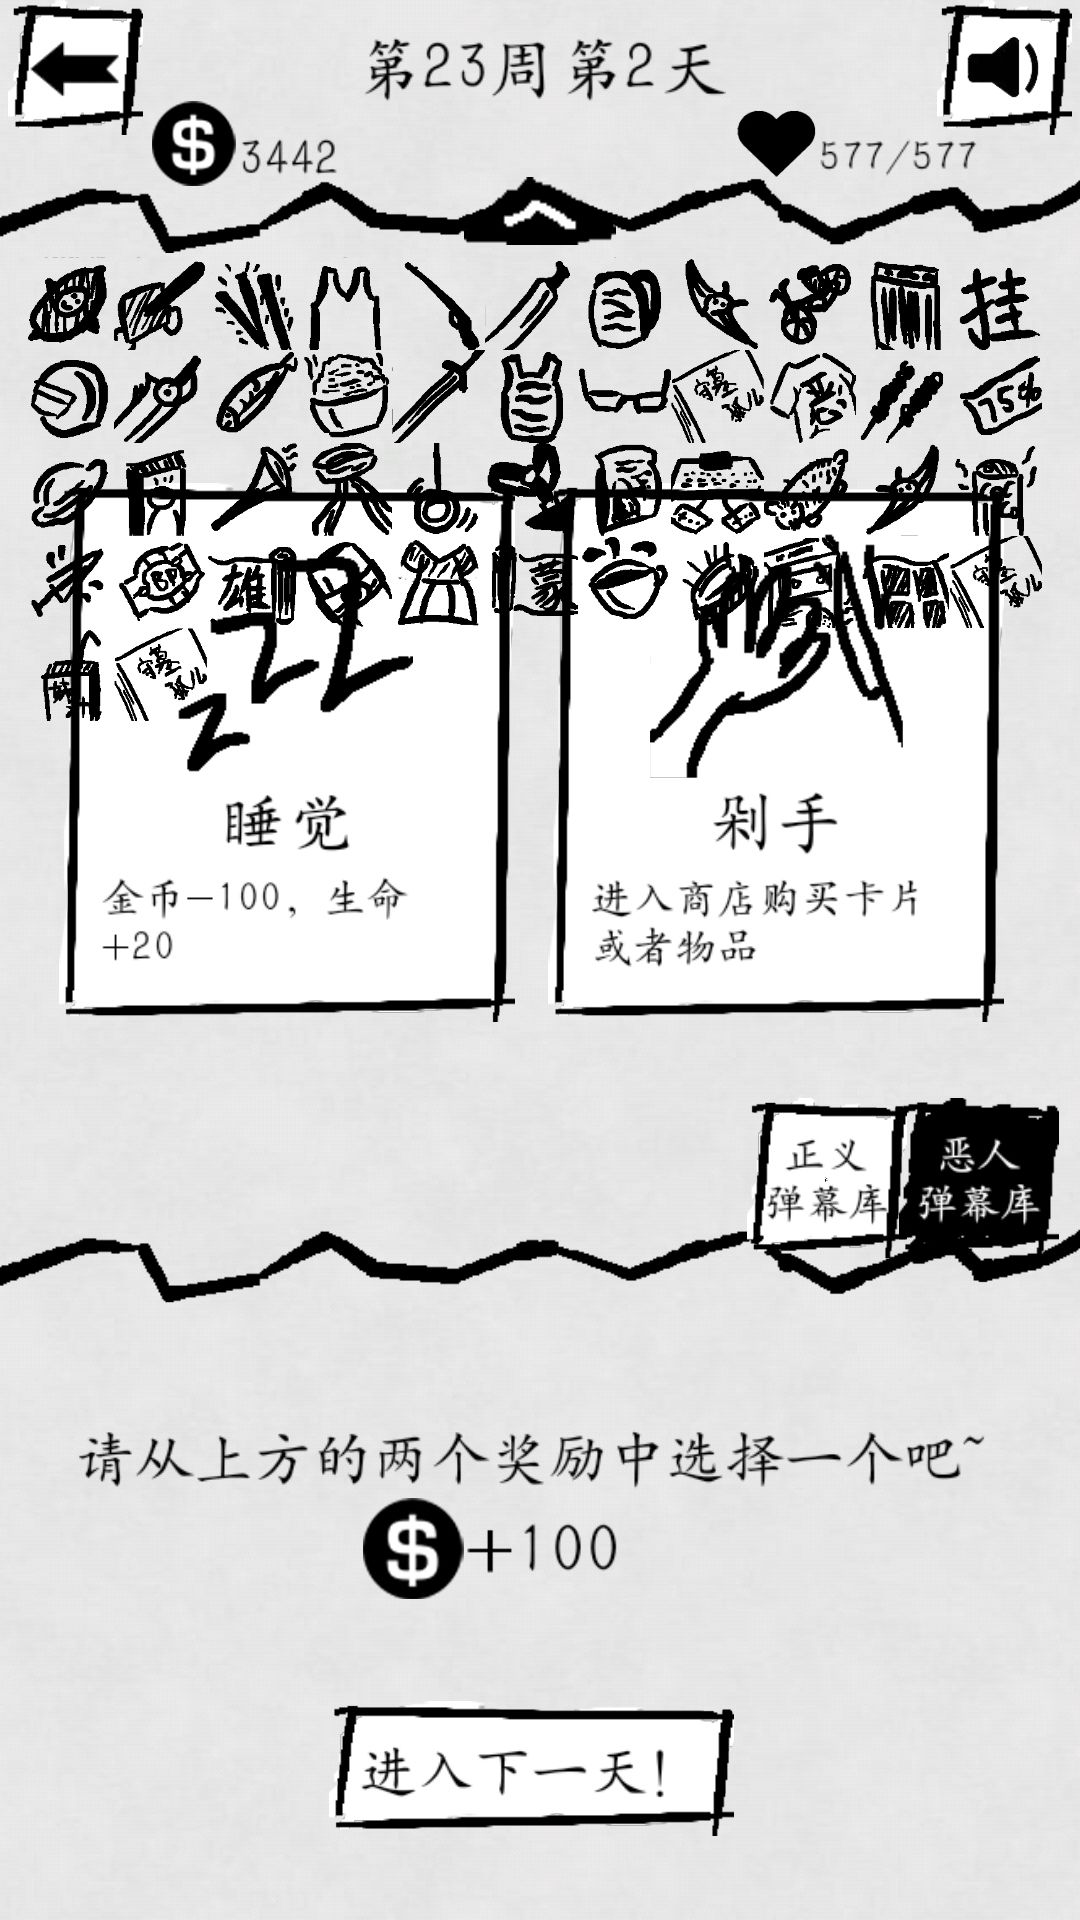 第23周 第2天
3442
577/577
挂
守墓孤儿
恶
75%
BP
雄
蒙
守墓孤儿
守墓孤儿
睡觉
剁手
金币-100，生命
+20
进入商店购买卡片
或者物品
正义
弹幕库
恶人
弹幕库
请从上方的两个奖励中选择一个吧~
$+100
进入下一天！